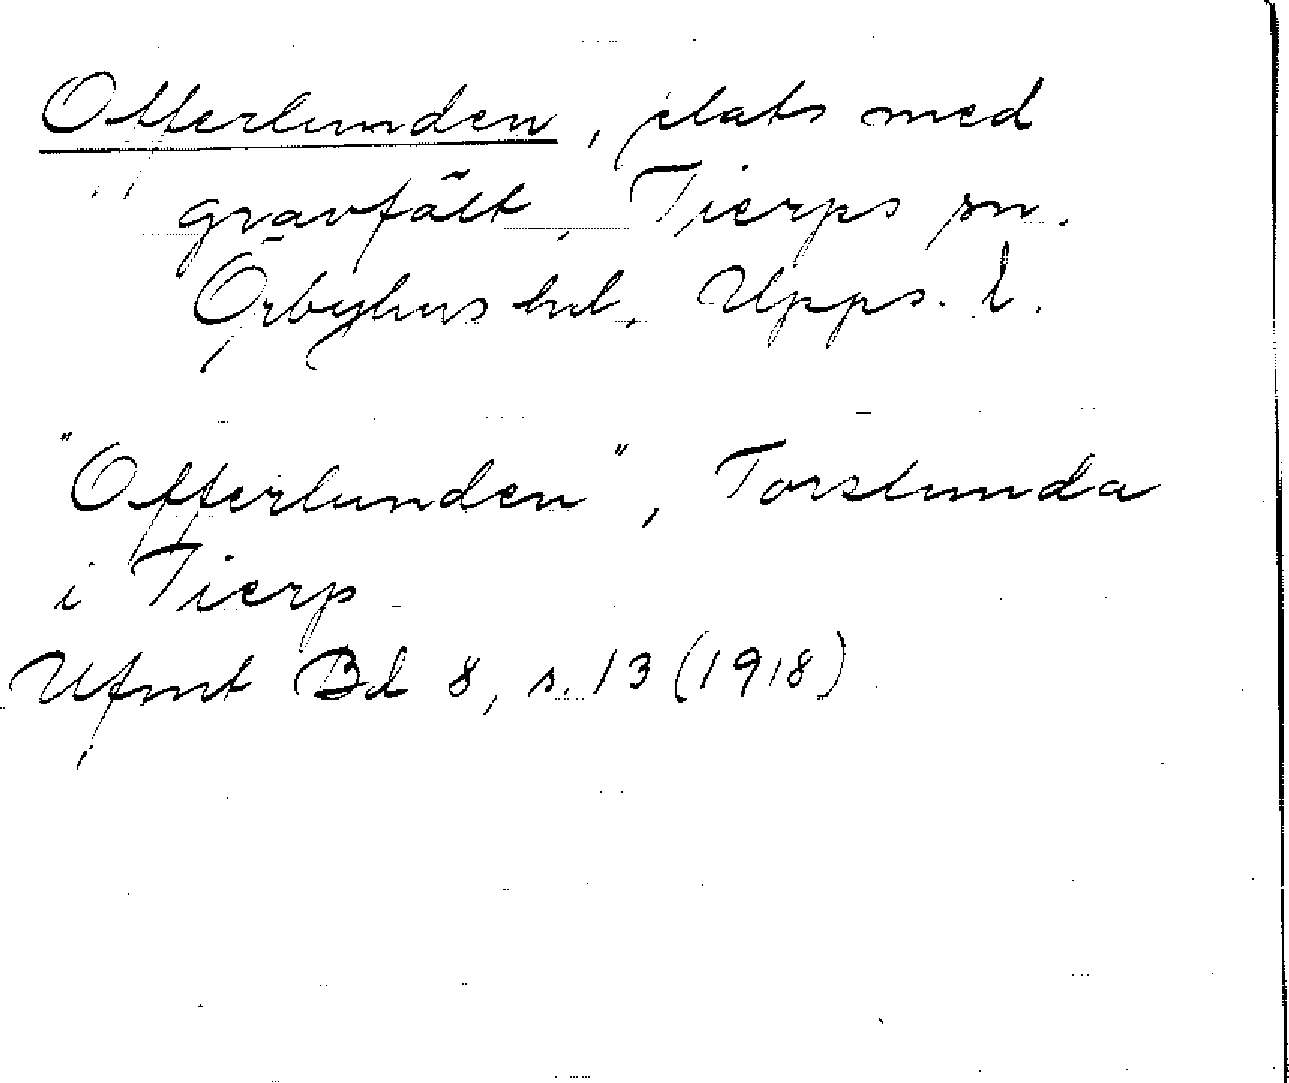 Offerlunden, plats med
gravfält, Tierps sn.
Örbyhus hd, Upps. l.
"Offerlunden", Torslunda
i Tierp
Ufmt Bd 8, s. 13 (1918)